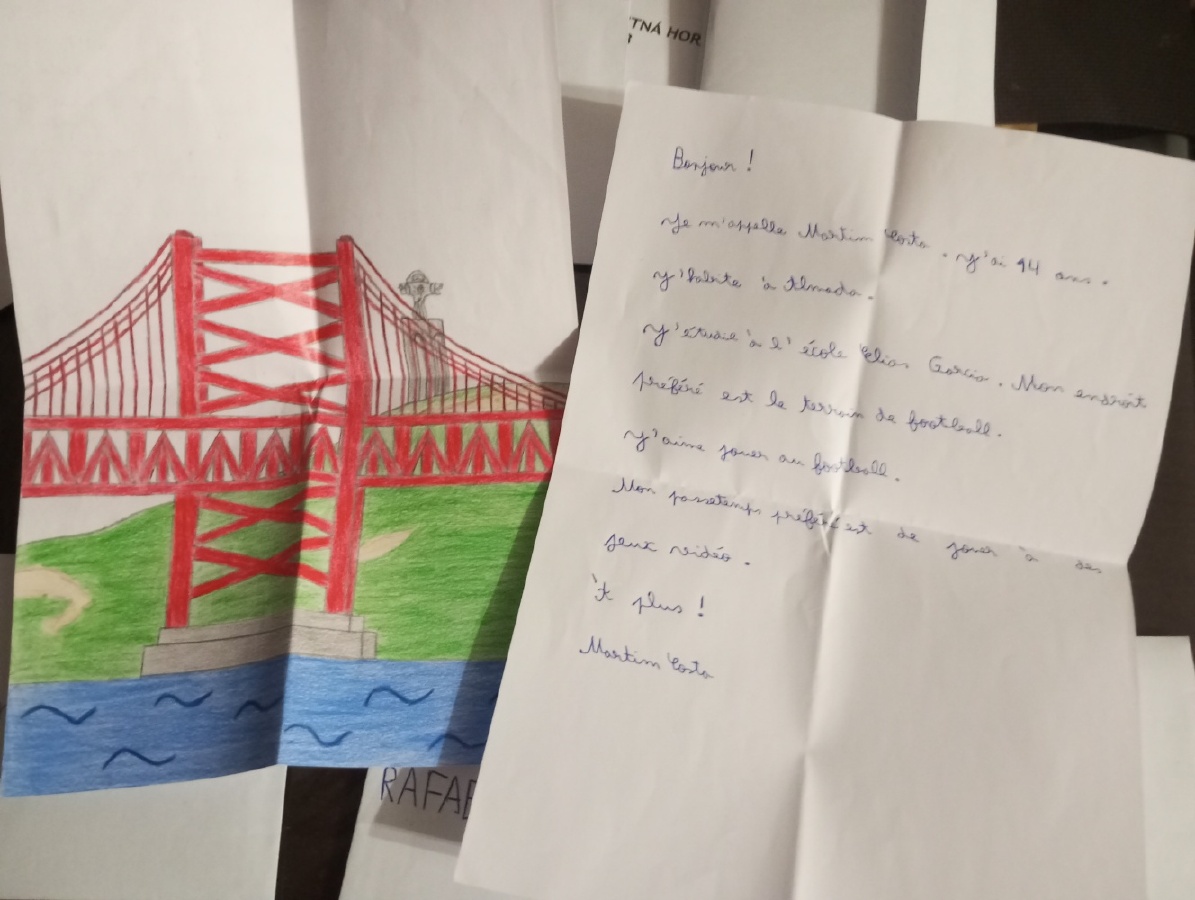 TNÁ HOR
Bonjour !
Je m'appelle Martim Costa. J'ai 14 ans.
J'habite à Almada.
J'étudie à l'école Elias Garcia. Mon endroit
préféré est le terrain de football.
J'aime jouer au football.
Mon passetemps préféré est de jouer à des
jeux vidéo.
À plus !
Martim Costa
RAFAE